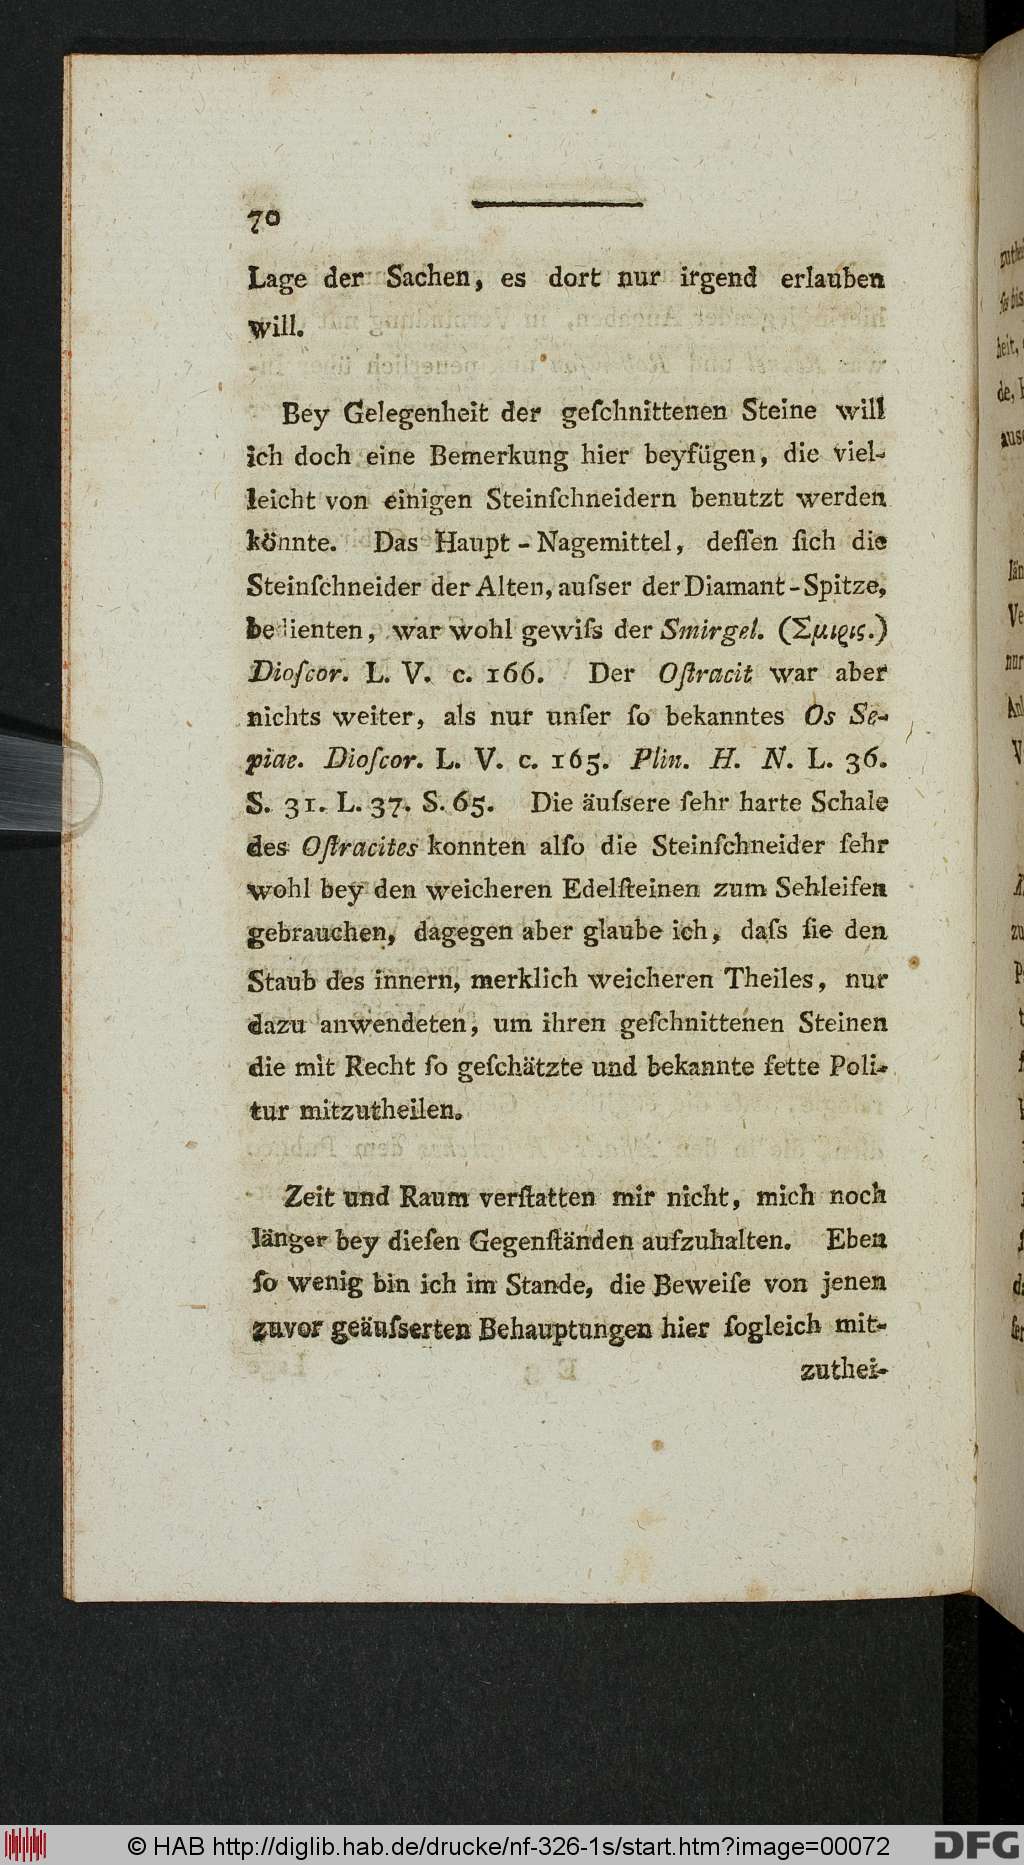 70
Lage der Sachen, es dort nur irgend erlauben
will.
Bey Gelegenheit der geſchnittenen Steine will
ich doch eine Bemerkung hier beyfügen, die viel-
leicht von einigen Steinſchneidern benutzt werden
könnte. Das Haupt-Nagemittel, deſſen ſich die
Steinſchneider der Alten, auſser der Diamant-Spitze,
bedienten, war wohl gewiſs der Smirgel. (Σμιρις.)
Dioſcor. L. V. c. 166. Der Oſtracit war aber
nichts weiter, als nur unſer ſo bekanntes Os Se-
piae. Dioſcor. L. V. c. 165. Plin. H. N. L. 36.
S. 31. L. 37. S. 65. Die äuſsere ſehr harte Schale
des Oſtracites konnten alſo die Steinſchneider ſehr
wohl bey den weicheren Edelſteinen zum Sehleifen
gebrauchen, dagegen aber glaube ich, daſs ſie den
Staub des innern, merklich weicheren Theiles, nur
dazu anwendeten, um ihren geſchnittenen Steinen
die mit Recht ſo geſchätzte und bekannte fette Poli-
tur mitzutheilen.
Zeit und Raum verſtatten mir nicht, mich noch
länger bey dieſen Gegenſtänden aufzuhalten. Eben
ſo wenig bin ich im Stande, die Beweiſe von jenen
zuvor geäuſserten Behauptungen hier ſogleich mit-
zuthei-
© HAB http://diglib.hab.de/drucke/nf-326-1s/start.htm?image=00072
DFG